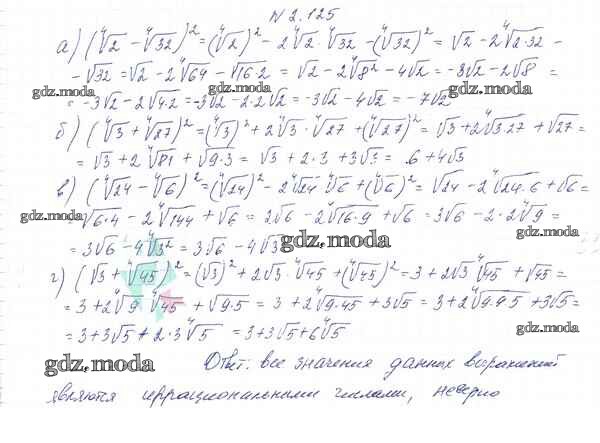 N 2.125
а) (⁴√2 - ⁴√32)² = (⁴√2)² - 2⁴√2 · ⁴√32 - (⁴√32)² = √2 - 2⁴√2·32 -
- √32 = √2 - 2⁴√64 - √16·2 = √2 - 2√8 - 4√2 = -3√2 - 2√8 =
gdz.moda
gdz.moda
gdz.moda
= -3√2 - 2√4·2 = -3√2 - 2·2√2 = -3√2 - 4√2 = -7√2
б) (⁴√3 + ⁴√27)² = (⁴√3)² + 2⁴√3 · ⁴√27 + (⁴√27)² = √3 + 2⁴√3·27 + √27 =
= √3 + 2⁴√81 + √9·3 = √3 + 2·3 + 3√3 = 6 + 4√3
gdz.moda
в) (⁴√24 - ⁴√6)² = (⁴√24)² - 2⁴√24 · ⁴√6 + (⁴√6)² = √24 - 2⁴√24·6 + √6 =
gdz.moda
= √6·4 - 2⁴√144 + √6 = 2√6 - 2⁴√16·9 + √6 = 3√6 - 2·2⁴√9 =
gdz.moda
= 3√6 - 4⁴√3² = 3√6 - 4√3
gdz.moda
г) (√3 + ⁴√45)² = (√3)² + 2√3 · ⁴√45 + (⁴√45)² = 3 + 2√3 ⁴√45 + √45 =
= 3 + 2⁴√9 · ⁴√45 + √9·5 = 3 + 2⁴√9·45 + 3√5 = 3 + 2⁴√9·9·5 + 3√5 =
= 3 + 3√5 + 2·3⁴√5 = 3 + 3√5 + 6⁴√5
gdz.moda
gdz.moda
Ответ: все значения данных выражений
являются иррациональными числами, неверно